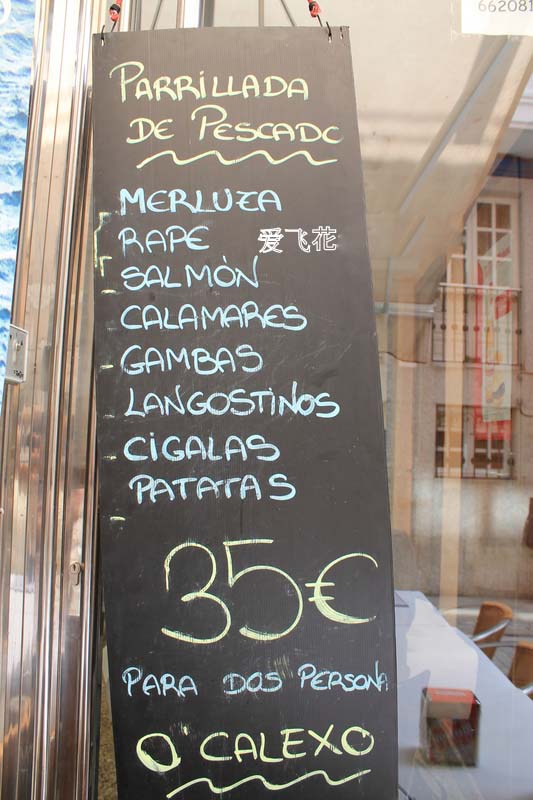 662081
PARRILLADA
DE PESCADO
MERLUZA
RAPE
爱飞花
SALMÓN
CALAMARES
GAMBAS
LANGOSTINOS
CIGALAS
PATATAS
35€
PARA DOS PERSONA
O'CALEXO